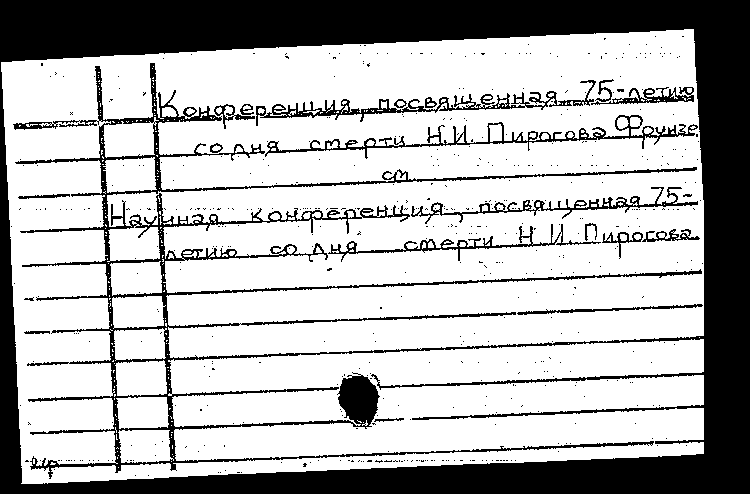 Конференция, посвященная 75-летию
со дня смерти Н.И. Пирогова Фрунзе
см.
Научная конференция, посвященная 75-
летию со дня смерти Н.И. Пирогова